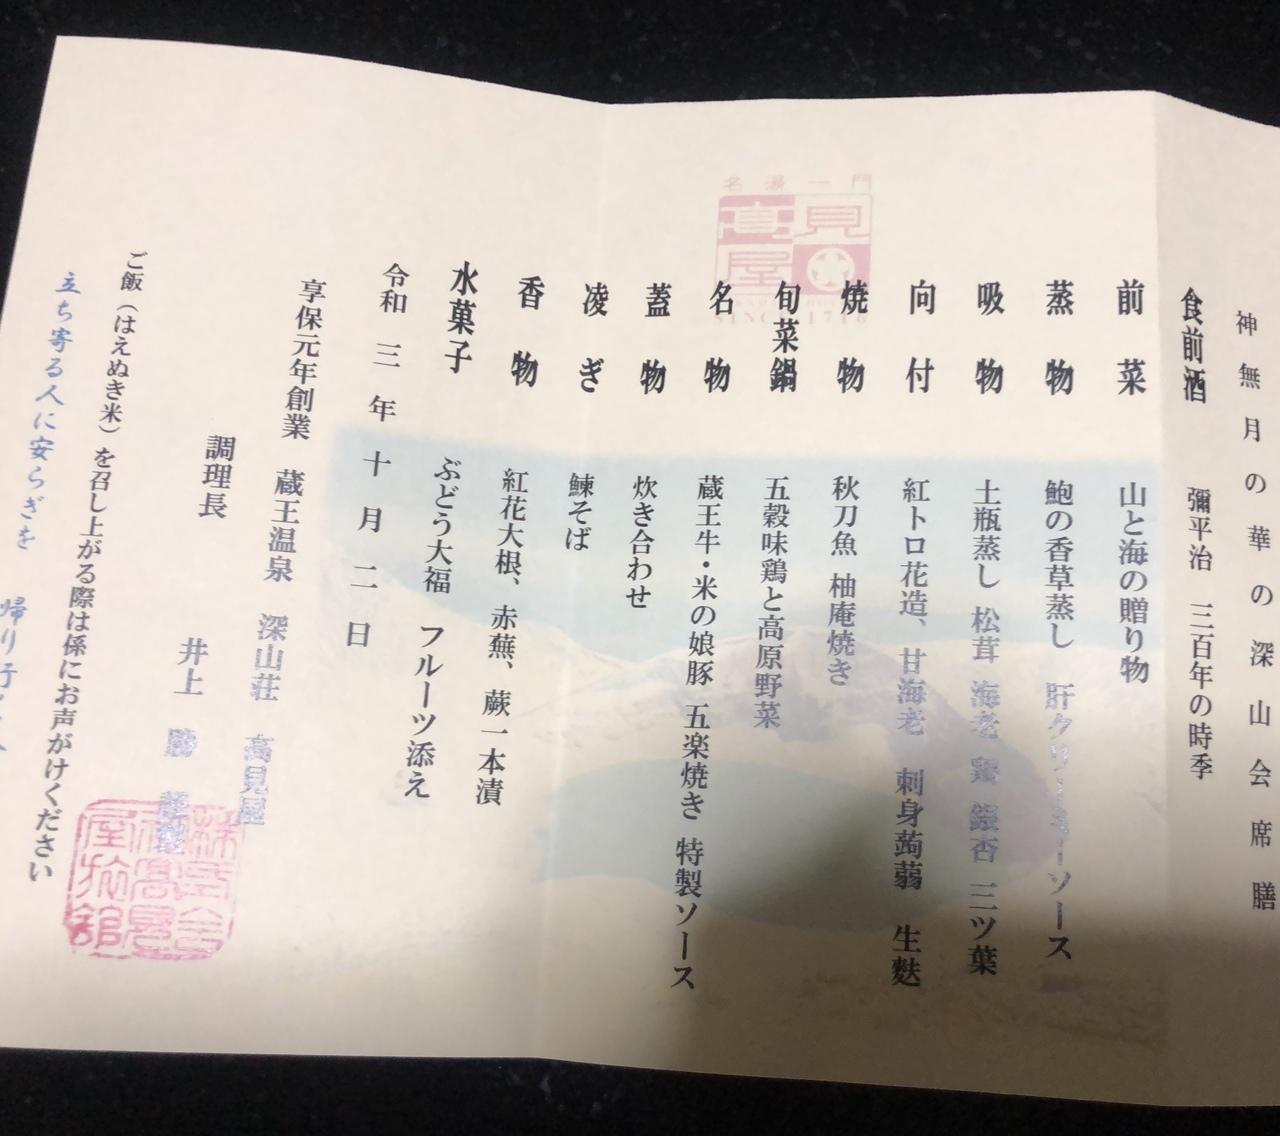 神無月の華の深山会席膳
食前酒 彌平治 三百年の時季
前菜 山と海の贈り物
蒸物 鮑の香草蒸し 肝クリームソース
吸物 土瓶蒸し 松茸 海老 鶏 銀杏 三ツ葉
向付 紅トロ花造、甘海老 刺身蒟蒻 生麩
焼物 秋刀魚 柚庵焼き
旬菜鍋 五穀味鶏と高原野菜
名物 蔵王牛・米の娘豚 五楽焼き 特製ソース
蓋物 炊き合わせ
凌ぎ 鰊そば
香物 紅花大根、赤蕪、蕨一本漬
水菓子 ぶどう大福 フルーツ添え
令和三年十月二日
享保元年創業 蔵王温泉 深山荘 高見屋
調理長 井上 勝
ご飯(はえぬき米)を召し上がる際は係にお声がけください
立ち寄る人に安らぎを 帰り行く人
名湯一門
高見屋
SINCE 1716
株式会社高見屋旅館